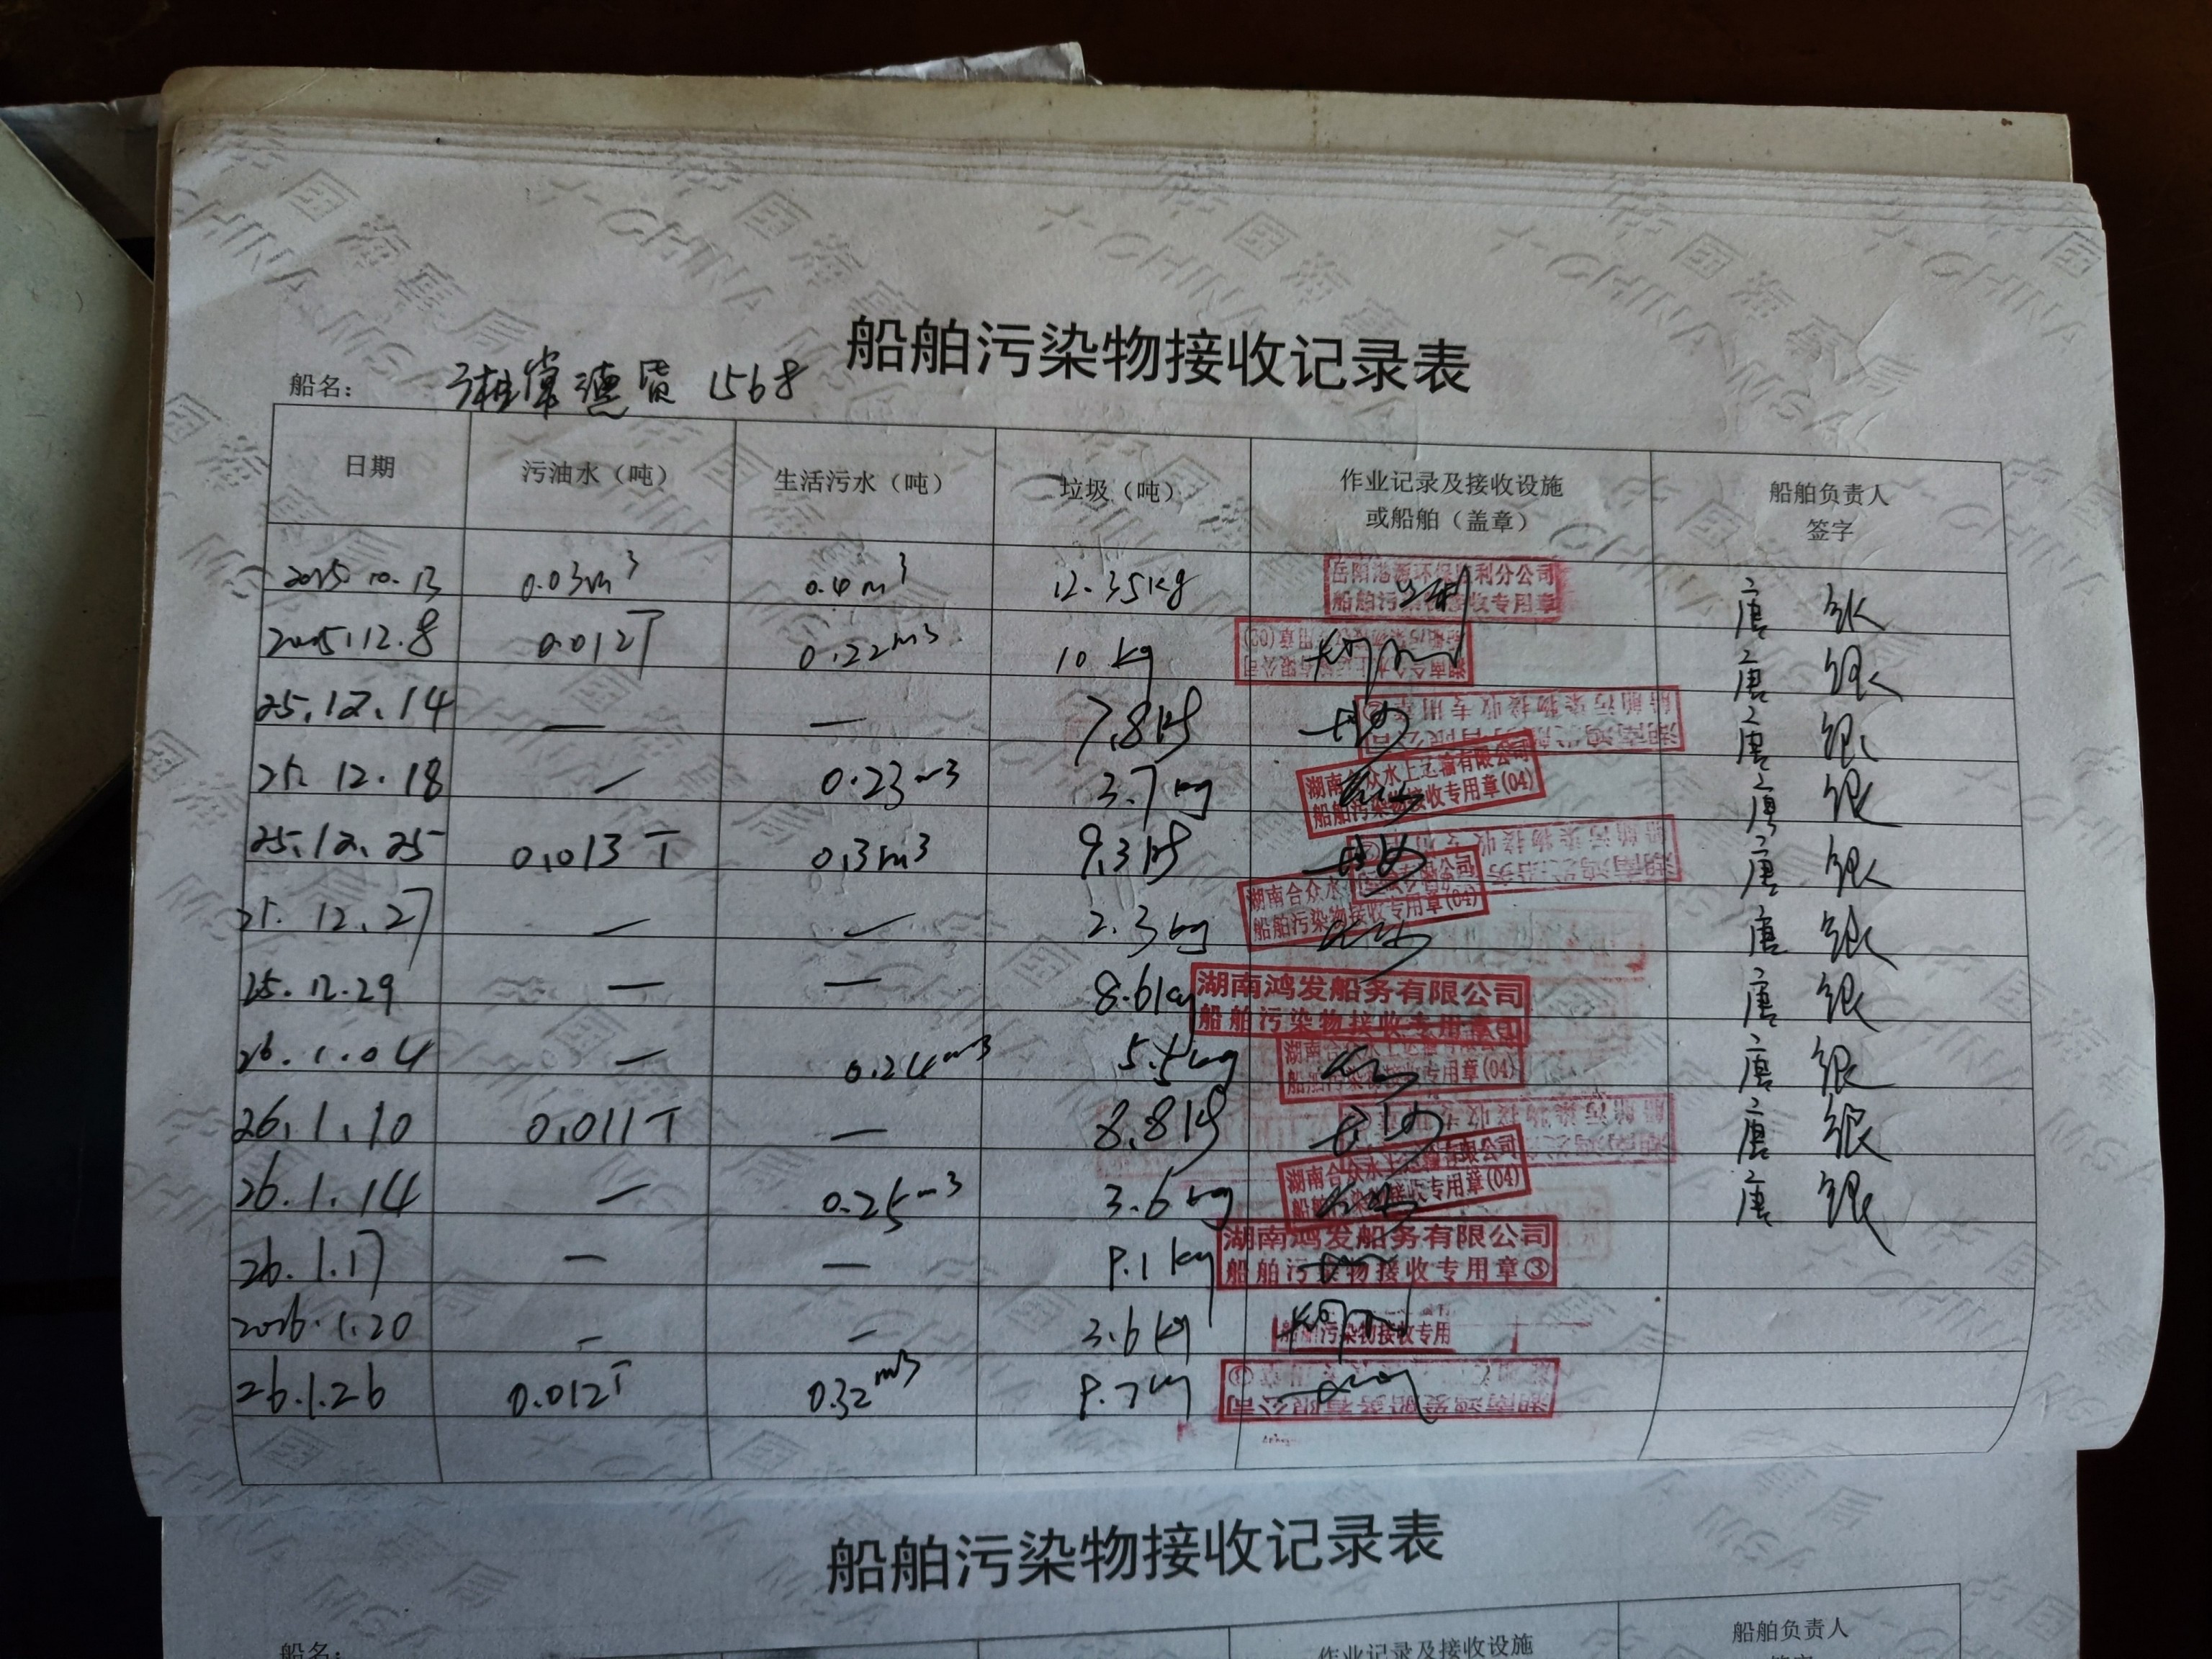 船舶污染物接收记录表
船名： 湘常德货 1568
日期 污油水（吨） 生活污水（吨） 垃圾（吨） 作业记录及接收设施或船舶（盖章） 船舶负责人签字
2025.10.13 0.03m³ 0.4m³ 12.35kg 船舶污染物接收专用章 唐银
2025.12.8 0.012T 0.22m³ 10kg 唐银
25.12.14 — — 7.8kg 唐银
25.12.18 — 0.23m³ 3.7kg 湖南合众水上运输有限公司 船舶污染物接收专用章(04) 唐银
25.12.25 0.013T 0.3m³ 9.3kg 唐银
25.12.27 — — 2.3kg 湖南合众水 船舶污染物接收专用章(04) 唐银
25.12.29 — — 8.6kg 湖南鸿发船务有限公司 船舶污染物接收专用章 唐银
26.1.04 — 0.24m³ 5.5kg 船舶污染物接收专用章(04) 唐银
26.1.10 0.011T — 8.8kg 唐银
26.1.14 — 0.25m³ 3.6kg 湖南合众水上运输有限公司 船舶污染物接收专用章(04) 唐银
26.1.17 — — 9.1kg 湖南鸿发船务有限公司 船舶污染物接收专用章③
2026.1.20 — — 3.6kg 船舶污染物接收专用
26.1.26 0.012T 0.32m³ 9.7kg 湖南鸿发船务有限公司
船舶污染物接收记录表
船名：
作业记录及接收设施 船舶负责人